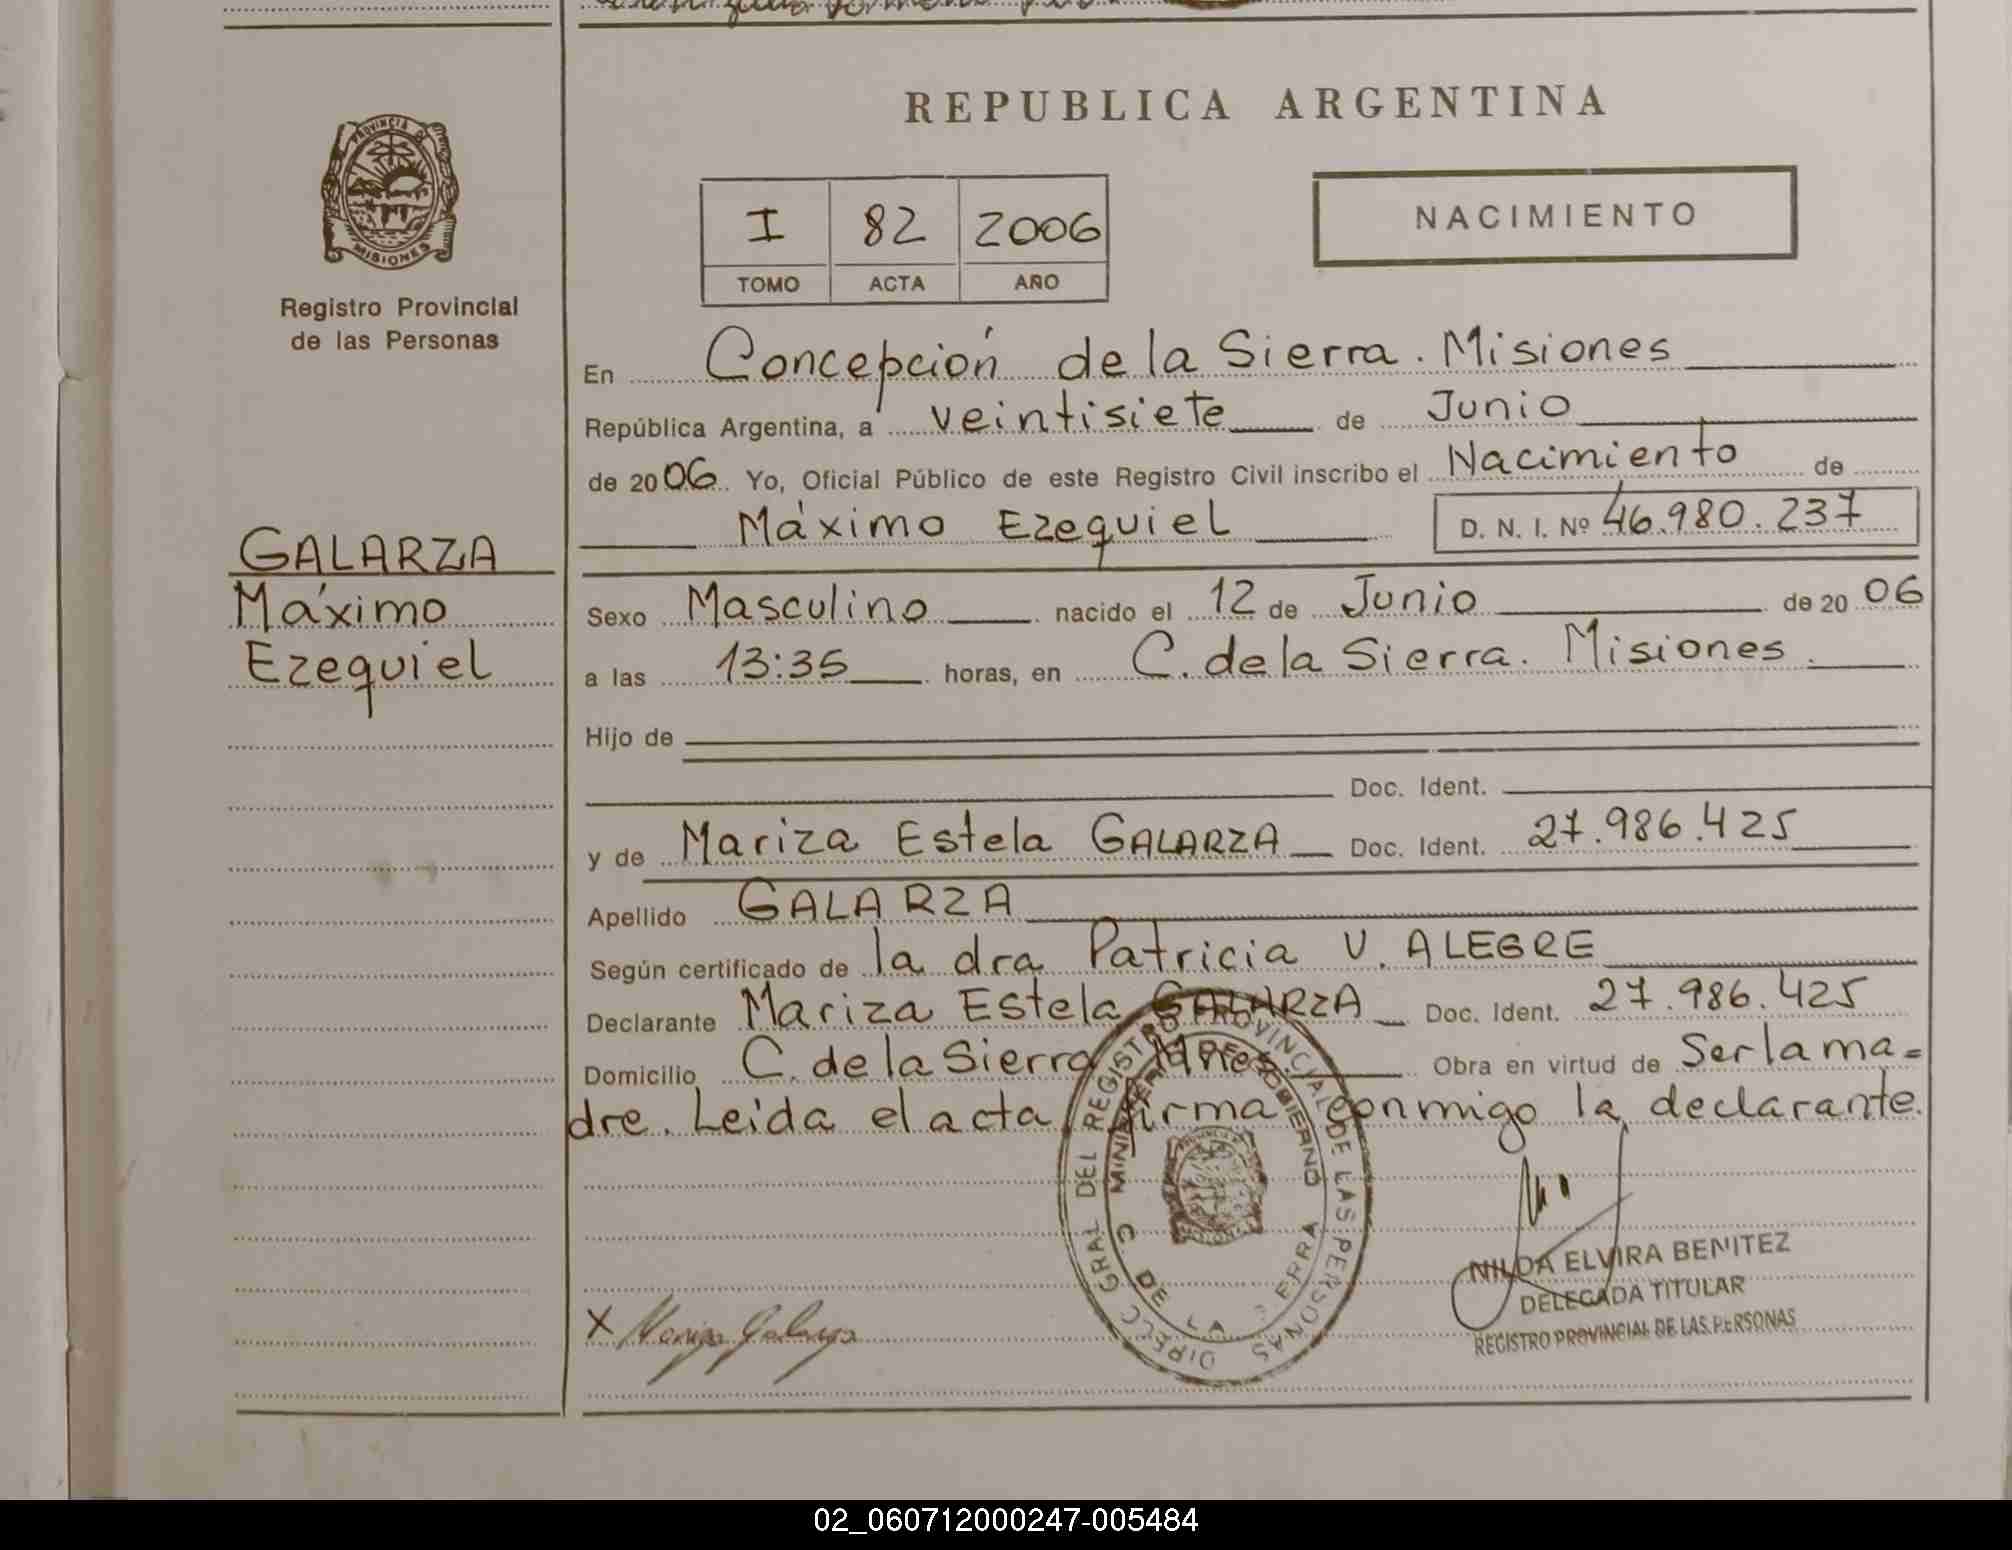 REPUBLICA ARGENTINA
PROVINCIA DE
MISIONES
Registro Provincial
de las Personas
I 82 2006
TOMO ACTA AÑO
NACIMIENTO
En Concepción de la Sierra. Misiones
República Argentina, a veintisiete de Junio
de 2006 Yo, Oficial Público de este Registro Civil inscribo el Nacimiento de
Máximo Ezequiel D. N. I. Nº 46.980.237
GALARZA
Máximo
Ezequiel
Sexo Masculino nacido el 12 de Junio de 2006
a las 13:35 horas, en C. de la Sierra. Misiones.
Hijo de
Doc. Ident.
y de Mariza Estela GALARZA Doc. Ident. 27.986.425
Apellido GALARZA
Según certificado de la dra Patricia V. ALEGRE
Declarante Mariza Estela GALARZA Doc. Ident. 27.986.425
Domicilio C. de la Sierra Mnes. Obra en virtud de Ser la ma=
dre. Leida el acta, firma conmigo la declarante.
DIRECC GRAL DEL REGISTRO PROVINCIAL DE LAS PERSONAS
MINISTERIO DE GOBIERNO
C DE LA SIERRA
X Mariza Galarza
NILDA ELVIRA BENITEZ
DELEGADA TITULAR
REGISTRO PROVINCIAL DE LAS PERSONAS
02_060712000247-005484